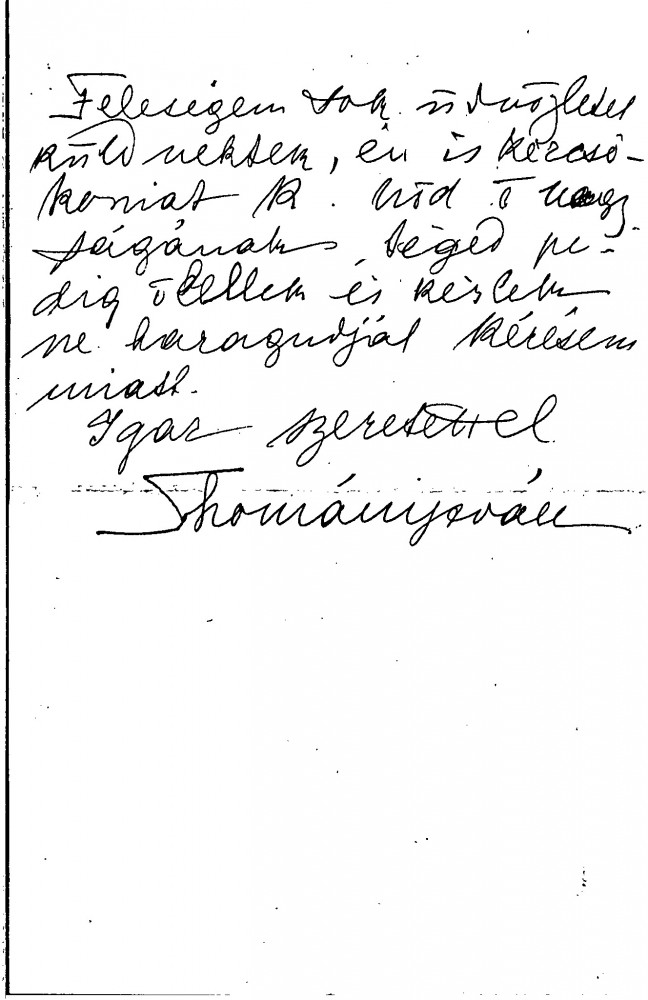 Feleségem sok üdvözletet
küld nektek, én is kézcsó-
komat K. Nőd ő nagy
ságának, téged pe-
dig ölellek és kérlek
ne haragudjál kérésem
miatt.
Igaz szeretettel
Thománistván